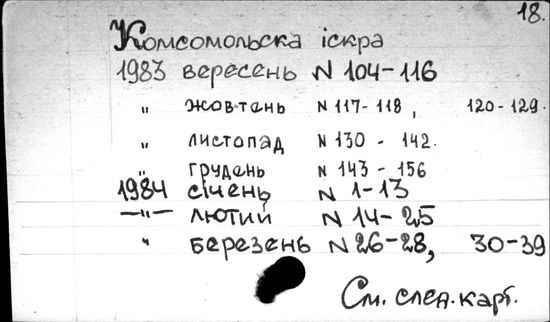 18.
Комсомольска іскра
1983 вересень N 104-116
" жовтень N 117-118, 120-129.
" листопад N 130 - 142.
" грудень N 143 - 156
1984 січень N 1-13
—"— лютий N 14-25
" березень N 26-28, 30-39
См. след. карт.